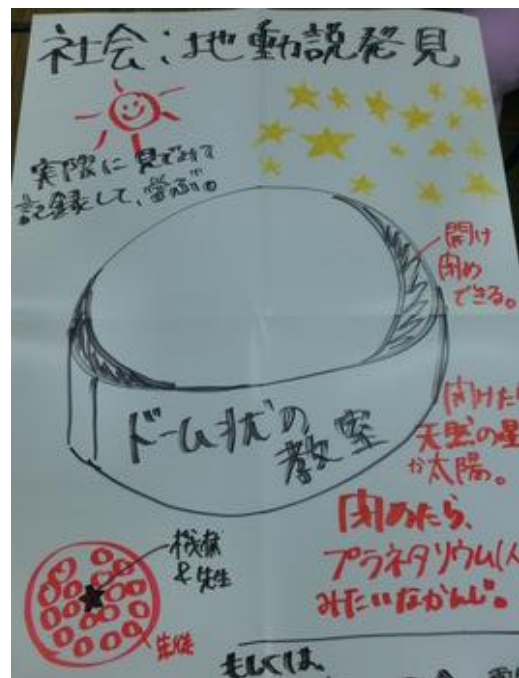 社会:地動説発見
実際に見てみて
記録して、学ぶ。
開け
閉め
できる。
ドーム状の
教室
開けたら
天然の星
か太陽。
閉めたら、
プラネタリウム(人
みたいなかんじ。
機械
&先生
生徒
もしくは、